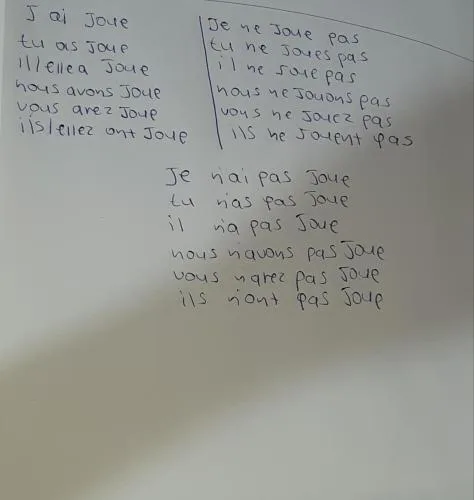 J ai Joue
tu as Joue
il/ellea Joue
nous avons Joue
vous avez Joue
ils/ellez ont Joue
Je ne Joue pas
tu ne Joues pas
il ne Joue pas
nous ne Jouons pas
vous ne Jouez pas
ils ne Jouent pas
Je n'ai pas Joue
tu n'as pas Joue
il n'a pas Joue
nous n'avons pas Joue
vous n'avez pas Joue
ils n'ont pas Joue